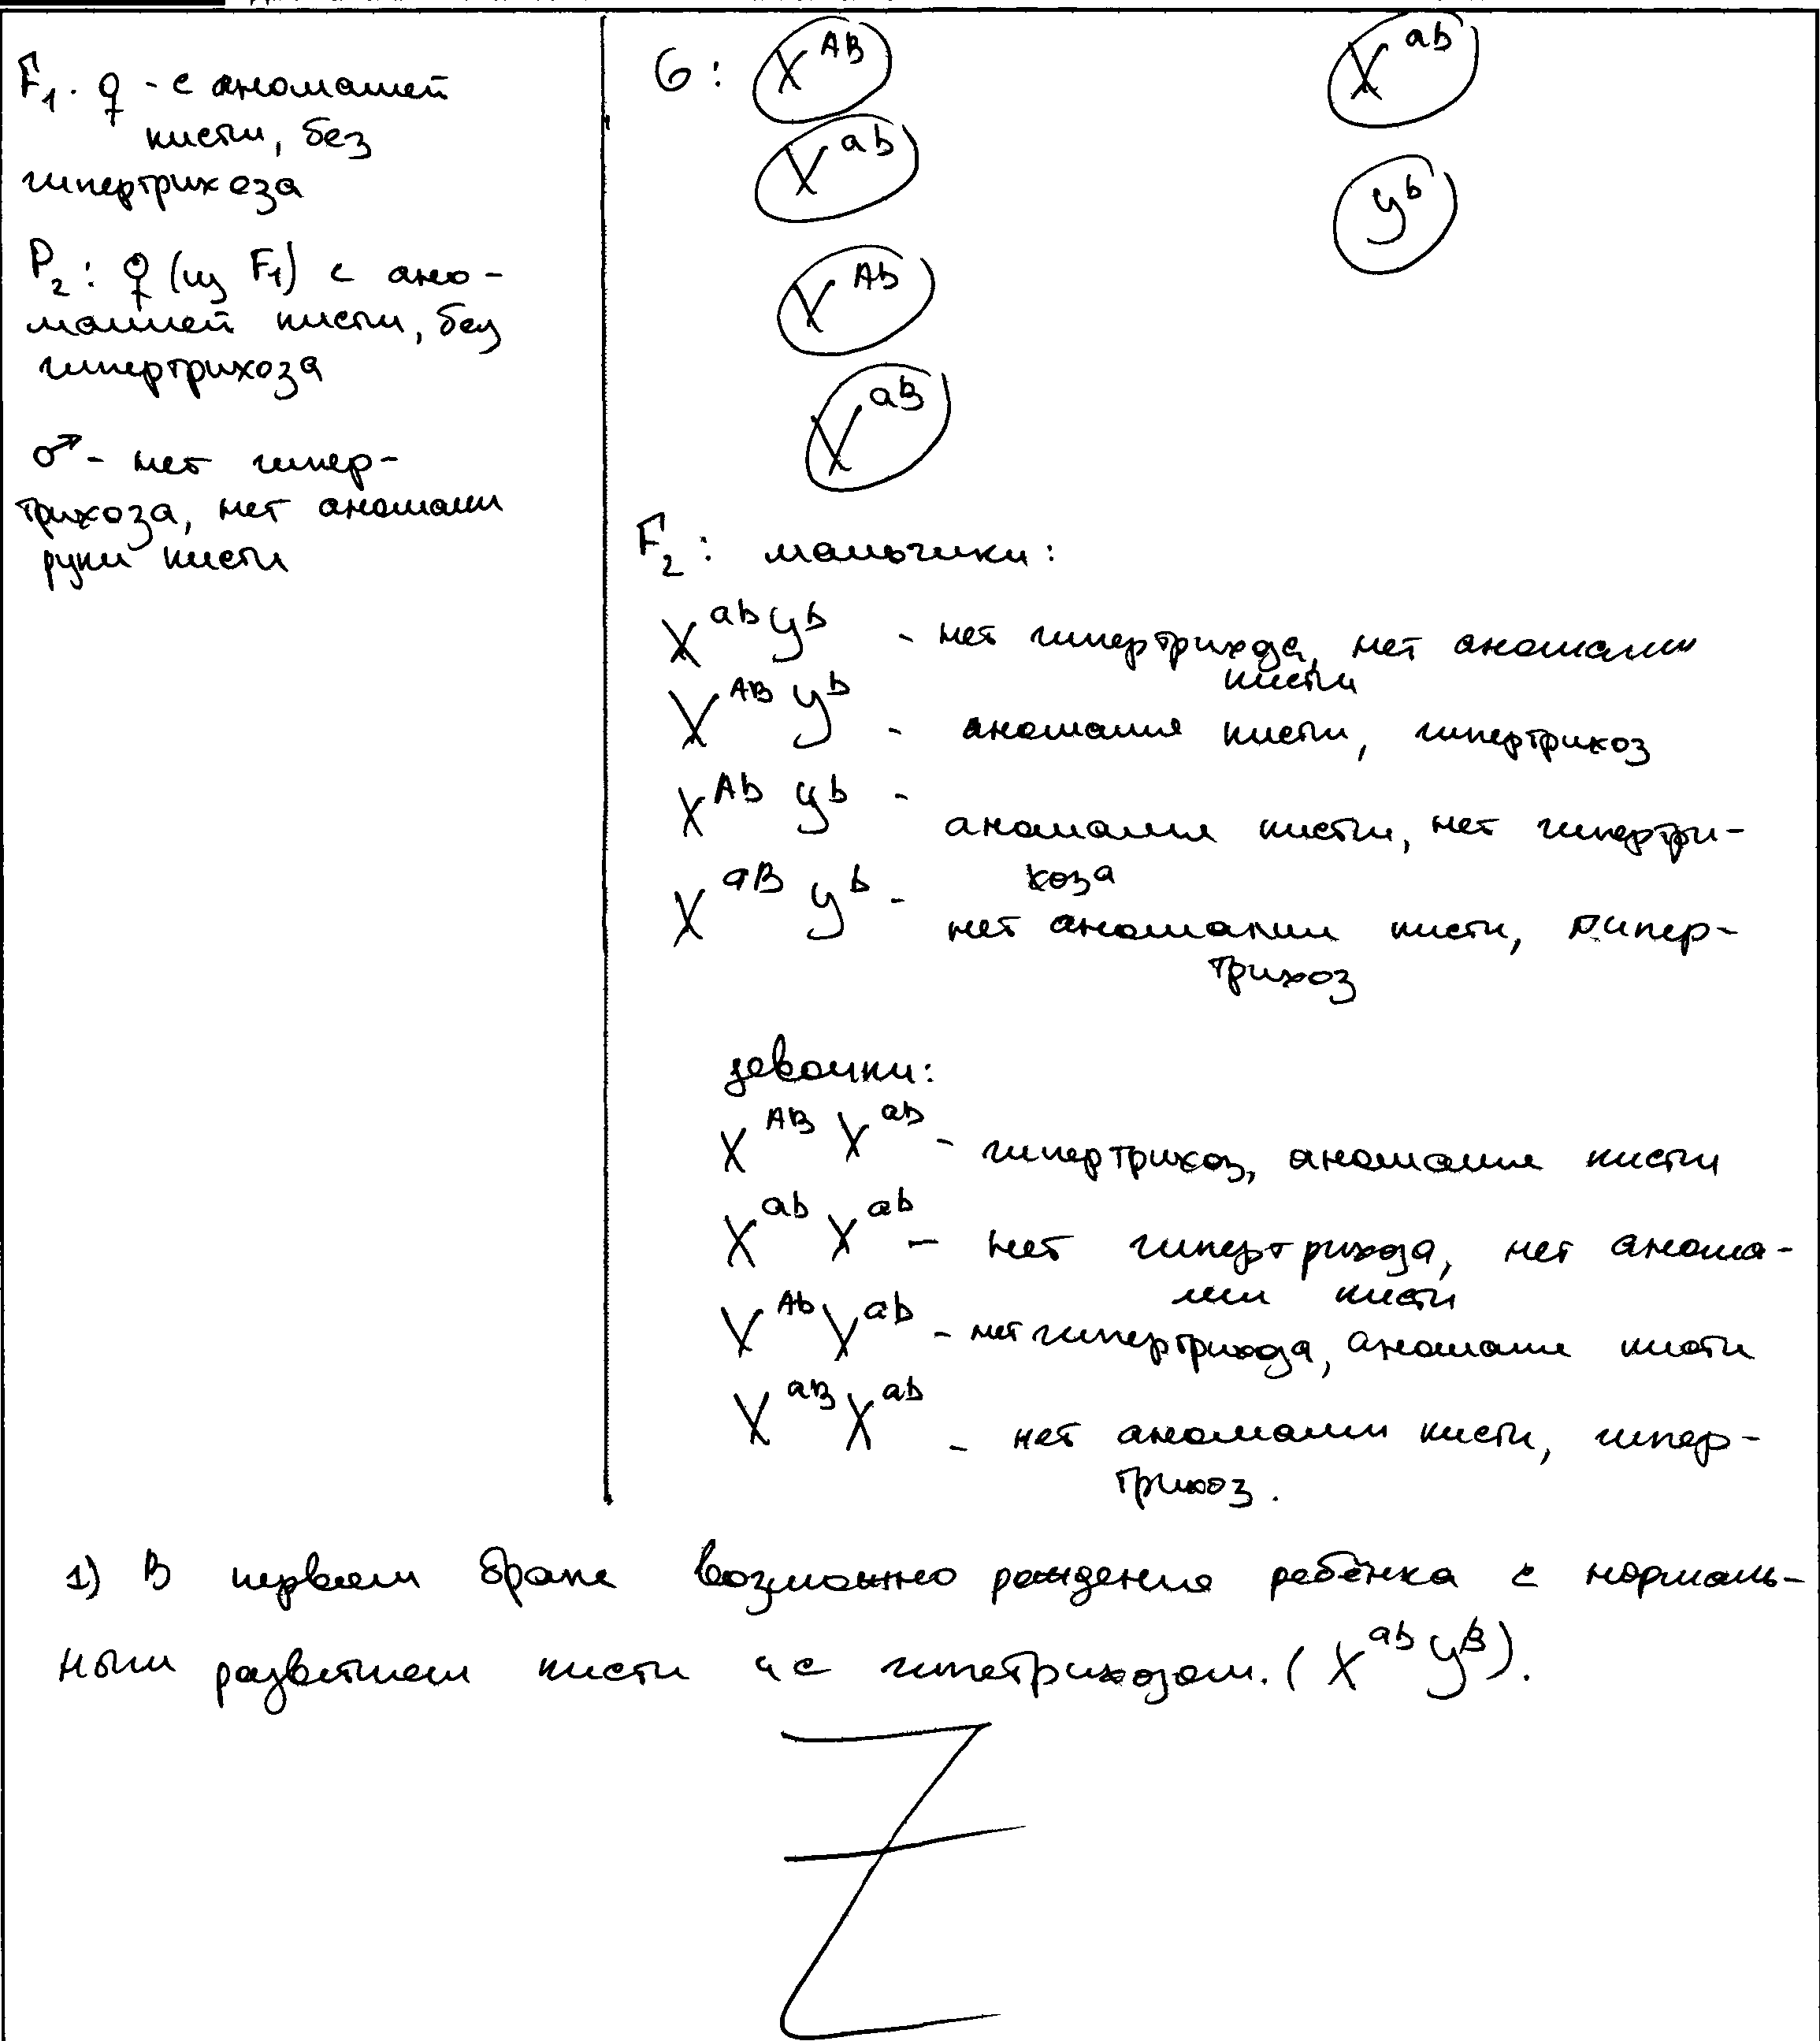 F₁. ♀ - с аномалией
кисти, без
гипертрихоза
P₂: ♀ (из F₁) с ано-
малией кисти, без
гипертрихоза
♂ - нет гипер-
трихоза, нет аномалии
руки кисти
G: X^AB X^ab
X^ab y^b
X^Ab
X^aB
F₂: мальчики:
X^ab y^b - нет гипертрихоза, нет аномалии
кисти
X^AB y^b - аномалия кисти, гипертрихоз
X^Ab y^b - аномалия кисти, нет гипертри-
хоза
X^aB y^b - нет аномалии кисти, гипер-
трихоз
девочки:
X^AB X^ab - гипертрихоз, аномалия кисти
X^ab X^ab - нет гипертрихоза, нет анома-
лии кисти
X^Ab X^ab - нет гипертрихоза, аномалия кисти
X^aB X^ab - нет аномалии кисти, гипер-
трихоз.
1) В первом браке возможно рождение ребёнка с нормаль-
ным развитием кисти и с гипетрихозом. (X^ab y^B).
Z